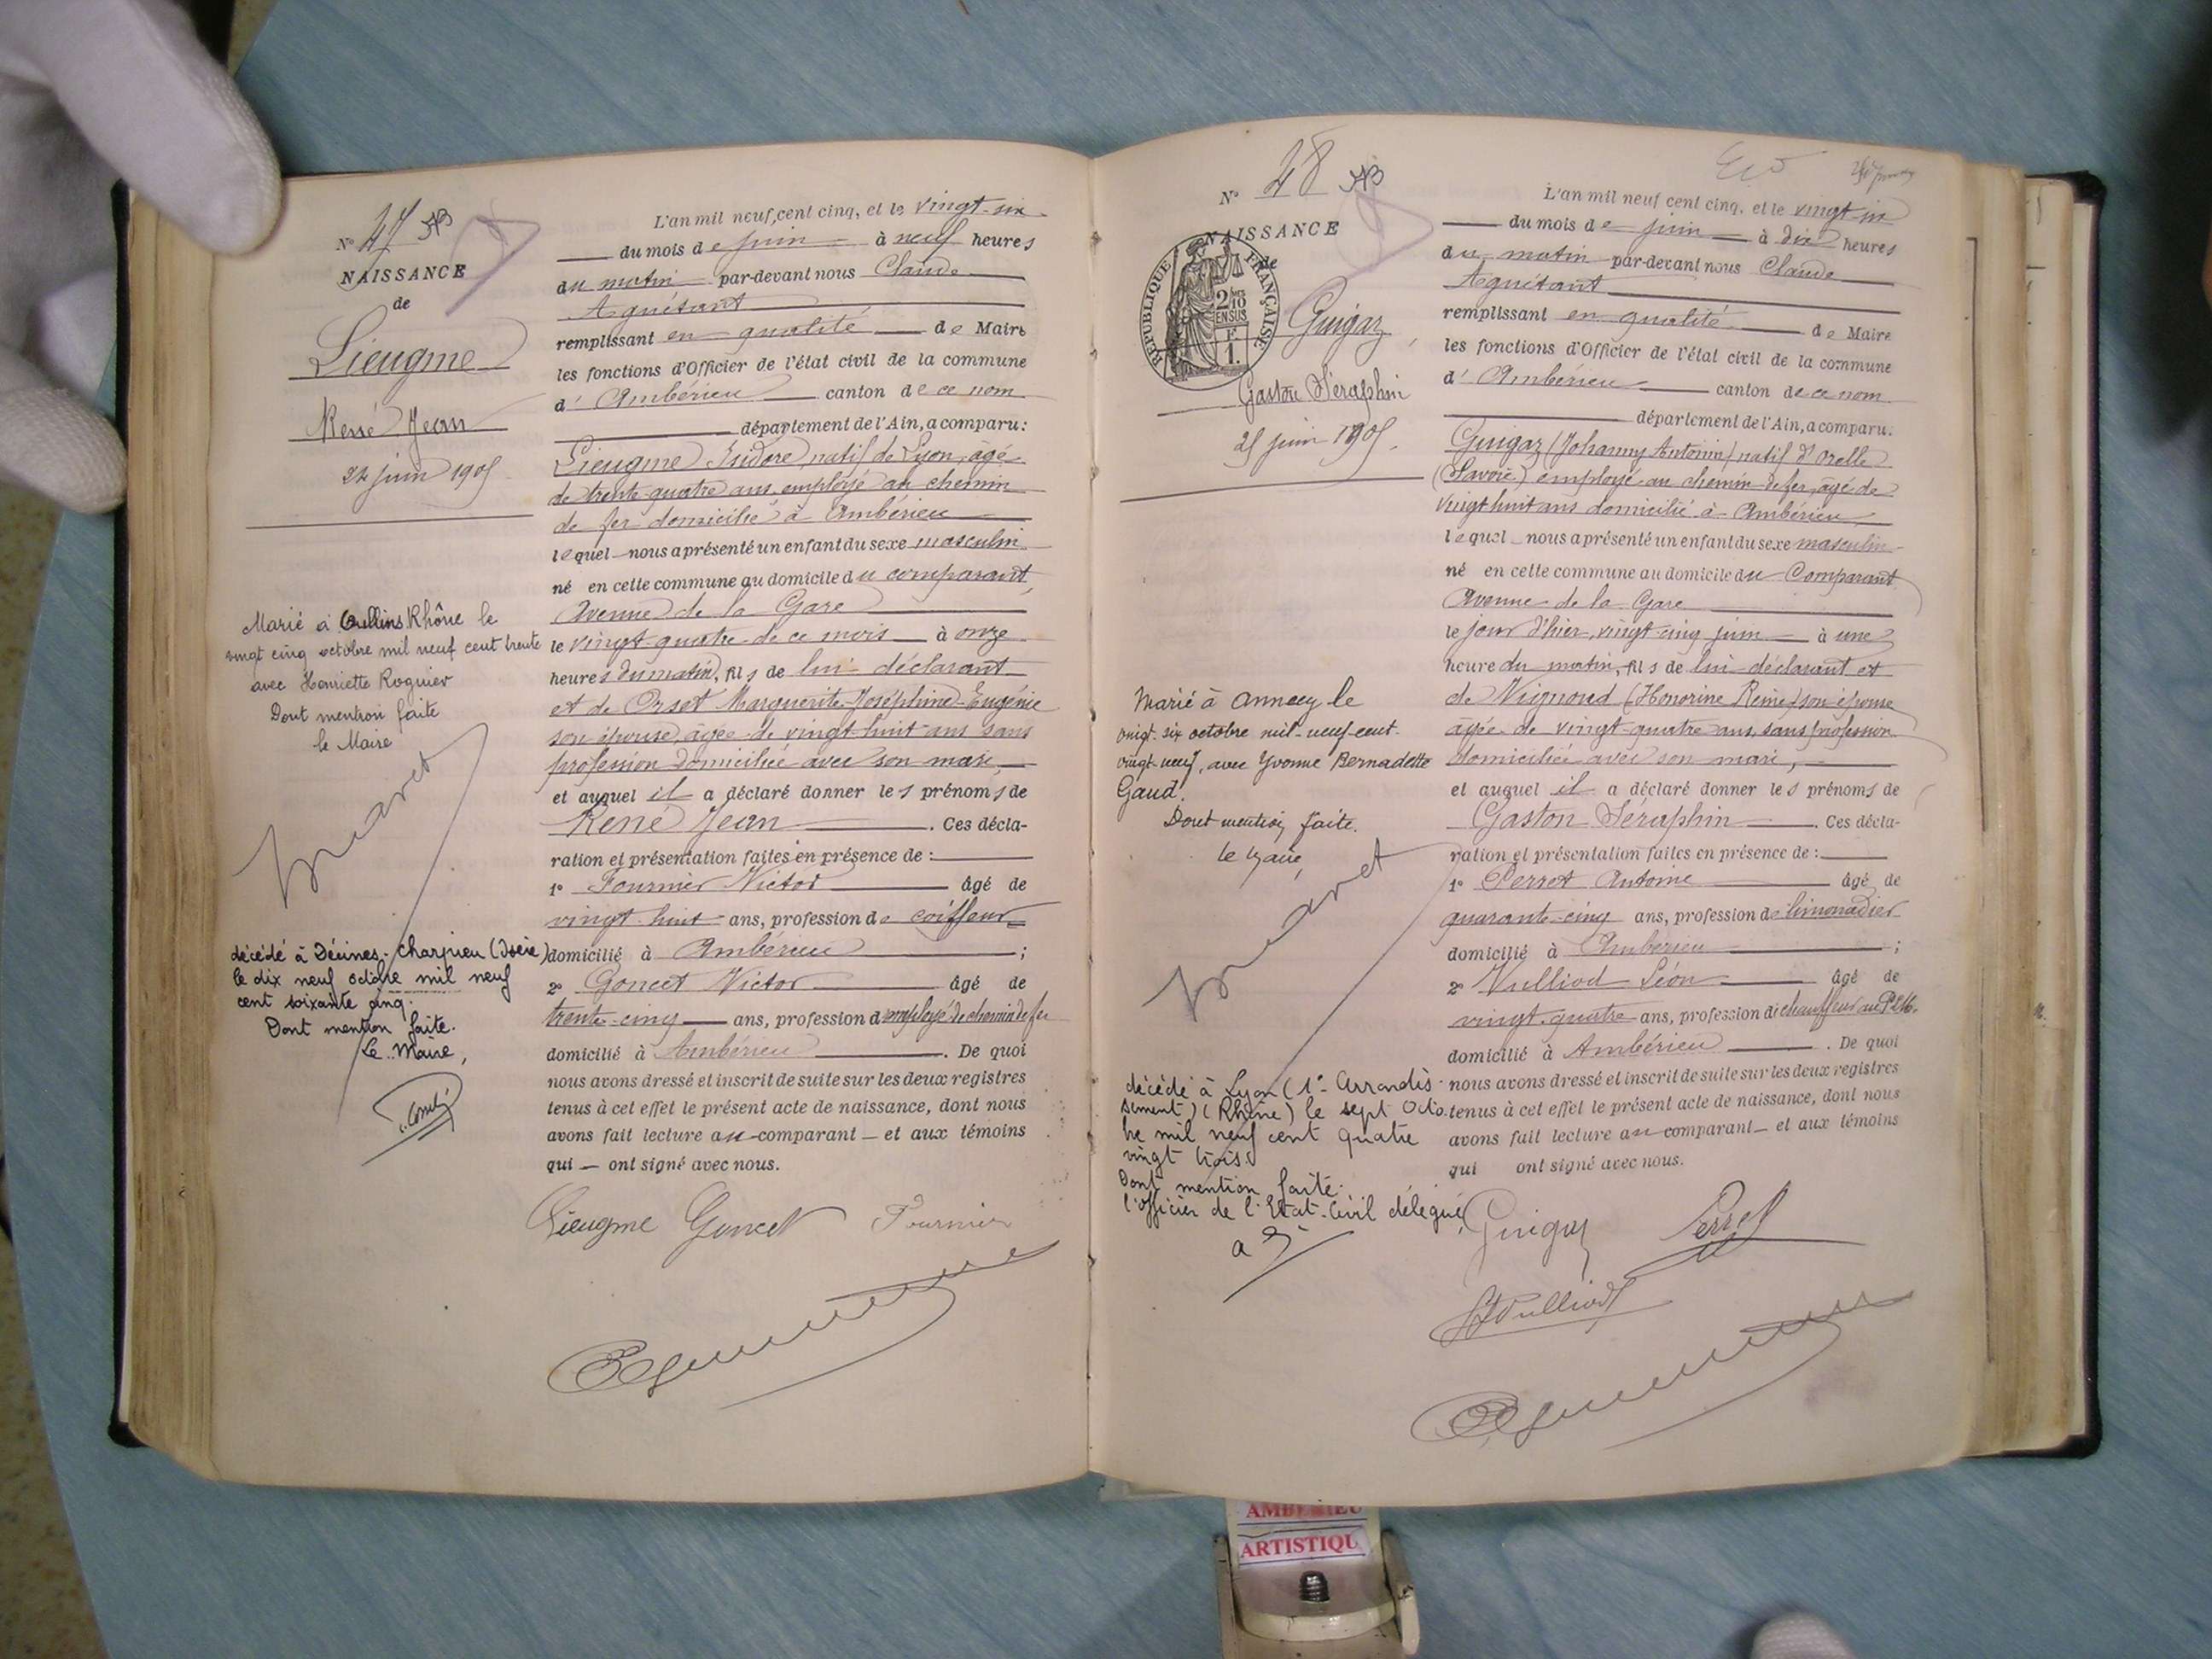 N° 47
NAISSANCE
de
Lieugme
René Jean
24 juin 1905
Marié à Oullins Rhône le
vingt cinq octobre mil neuf cent trente
avec Henriette Roguier
Dont mention faite
le Maire
décédé à Décines-Charpieu (Isère)
le dix neuf octobre mil neuf
cent soixante cinq.
Dont mention faite.
Le Maire,
L'an mil neuf cent cinq, et le vingt-six
du mois de juin à neuf heures
du matin par-devant nous Claude
Aguétant
remplissant en qualité de Maire
les fonctions d'Officier de l'état civil de la commune
d'Ambérieu canton de ce nom
département de l'Ain, a comparu:
Lieugme Isidore, natif de Lyon, âgé
de trente-quatre ans, employé au chemin
de fer domicilié à Ambérieu
lequel nous a présenté un enfant du sexe masculin
né en cette commune au domicile du comparant,
Avenue de la Gare
le vingt-quatre de ce mois à onze
heures du matin, fils de lui déclarant
et de Orset Marguerite-Joséphine-Eugénie
son épouse, âgée de vingt-huit ans sans
profession domiciliée avec son mari,
et auquel il a déclaré donner les prénoms de
René Jean. Ces décla-
ration et présentation faites en présence de :
1° Fournier Victor âgé de
vingt-huit ans, profession de coiffeur
domicilié à Ambérieu ;
2° Goncet Victor âgé de
trente-cinq ans, profession d'employé de chemin de fer
domicilié à Ambérieu. De quoi
nous avons dressé et inscrit de suite sur les deux registres
tenus à cet effet le présent acte de naissance, dont nous
avons fait lecture au comparant et aux témoins
qui ont signé avec nous.
Lieugme Goncet Fournier
N° 48
NAISSANCE
de
RÉPUBLIQUE FRANÇAISE
2/10 EN SUS
F 1.
Guigaz
Gaston Séraphin
25 juin 1905.
Marié à Annecy le
vingt-six octobre mil-neuf-cent-
vingt-neuf, avec Yvonne Bernadette
Gaud.
Dont mention faite.
le Maire,
décédé à Lyon (1° Arrondis-
sement) (Rhône) le sept Octo-
bre mil neuf cent quatre
vingt trois
Dont mention faite.
l'Officier de l'Etat-Civil délégué,
L'an mil neuf cent cinq, et le vingt-six
du mois de juin à dix heures
du matin par-devant nous Claude
Aguétant
remplissant en qualité de Maire
les fonctions d'Officier de l'état civil de la commune
d'Ambérieu canton de ce nom
département de l'Ain, a comparu:
Guigaz (Johanny Antonin) natif d'Orelle
(Savoie) employé au chemin de fer, âgé de
vingt huit ans domicilié à Ambérieu
lequel nous a présenté un enfant du sexe masculin
né en cette commune au domicile du Comparant
Avenue de la Gare
le jour d'hier, vingt-cinq juin à une
heure du matin, fils de lui déclarant et
de Vignoud (Honorine Reine) son épouse
âgée de vingt-quatre ans, sans profession
domiciliée avec son mari,
et auquel il a déclaré donner les prénoms de
Gaston Séraphin. Ces décla-
ration et présentation faites en présence de :
1° Perret Antoine âgé de
quarante-cinq ans, profession de limonadier
domicilié à Ambérieu ;
2° Vulliod Léon âgé de
vingt-quatre ans, profession de chauffeur au P.L.M.
domicilié à Ambérieu. De quoi
nous avons dressé et inscrit de suite sur les deux registres
tenus à cet effet le présent acte de naissance, dont nous
avons fait lecture au comparant et aux témoins
qui ont signé avec nous.
Guigaz Perret
Vulliod
AMBERIEU
ARTISTIQU